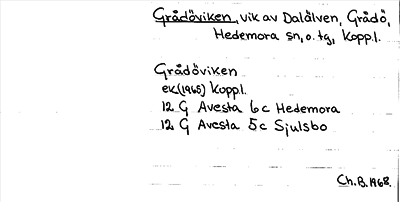 Grådöviken, vik av Dalälven, Grådö,
Hedemora sn, o. tg, Koppl.
Grådöviken
ek(1965) Koppl.
12 G Avesta 6c Hedemora
12 G Avesta 5c Sjulsbo
Ch.B. 1968.